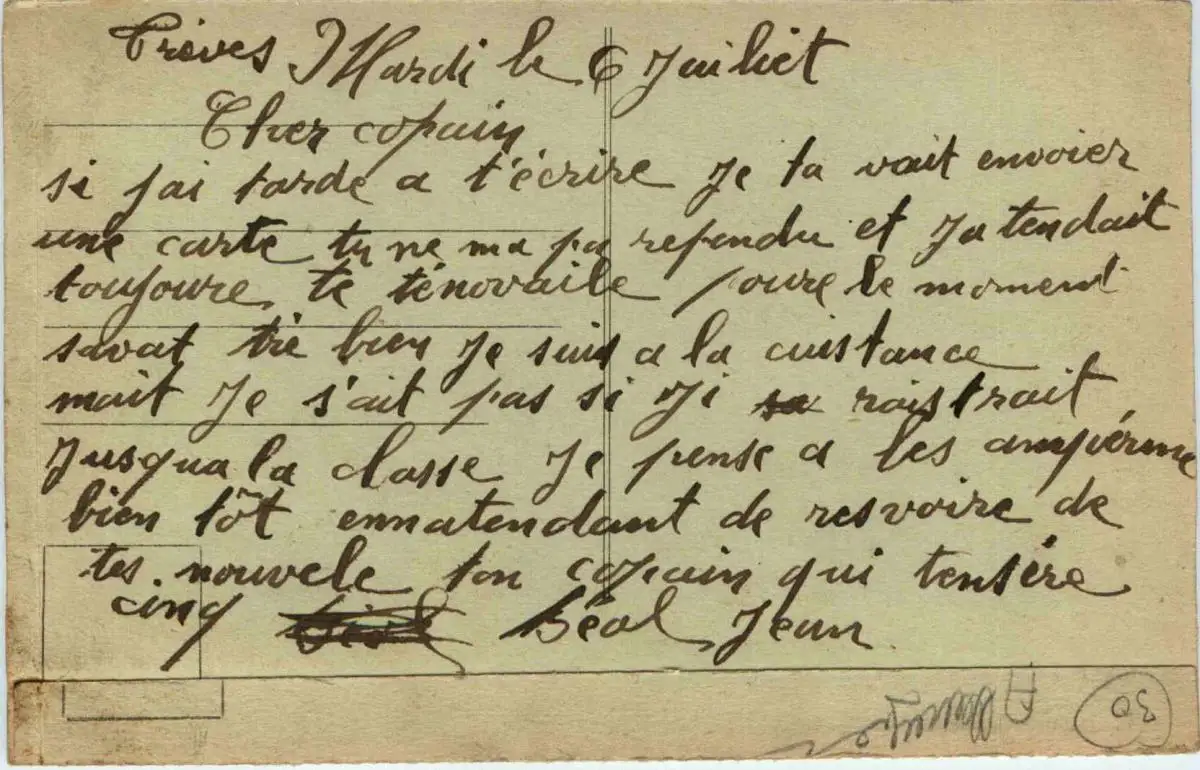 Trèves Mardi le 6 Juillet
Cher copain
si jai tarde a t'écrire Je ta vait envoier
une carte tu ne ma pa rependu et Jatendait
toujoure te ténovaile poure le moment
savat trè bien Je suis a la cuistance
mait Je s'ait pas si Ji raistrait
Jusqua la classe Je pense a les
bien tôt ennatendant de resvoire de
tes nouvele ton copain qui tensére
cinq Béol Jean
30